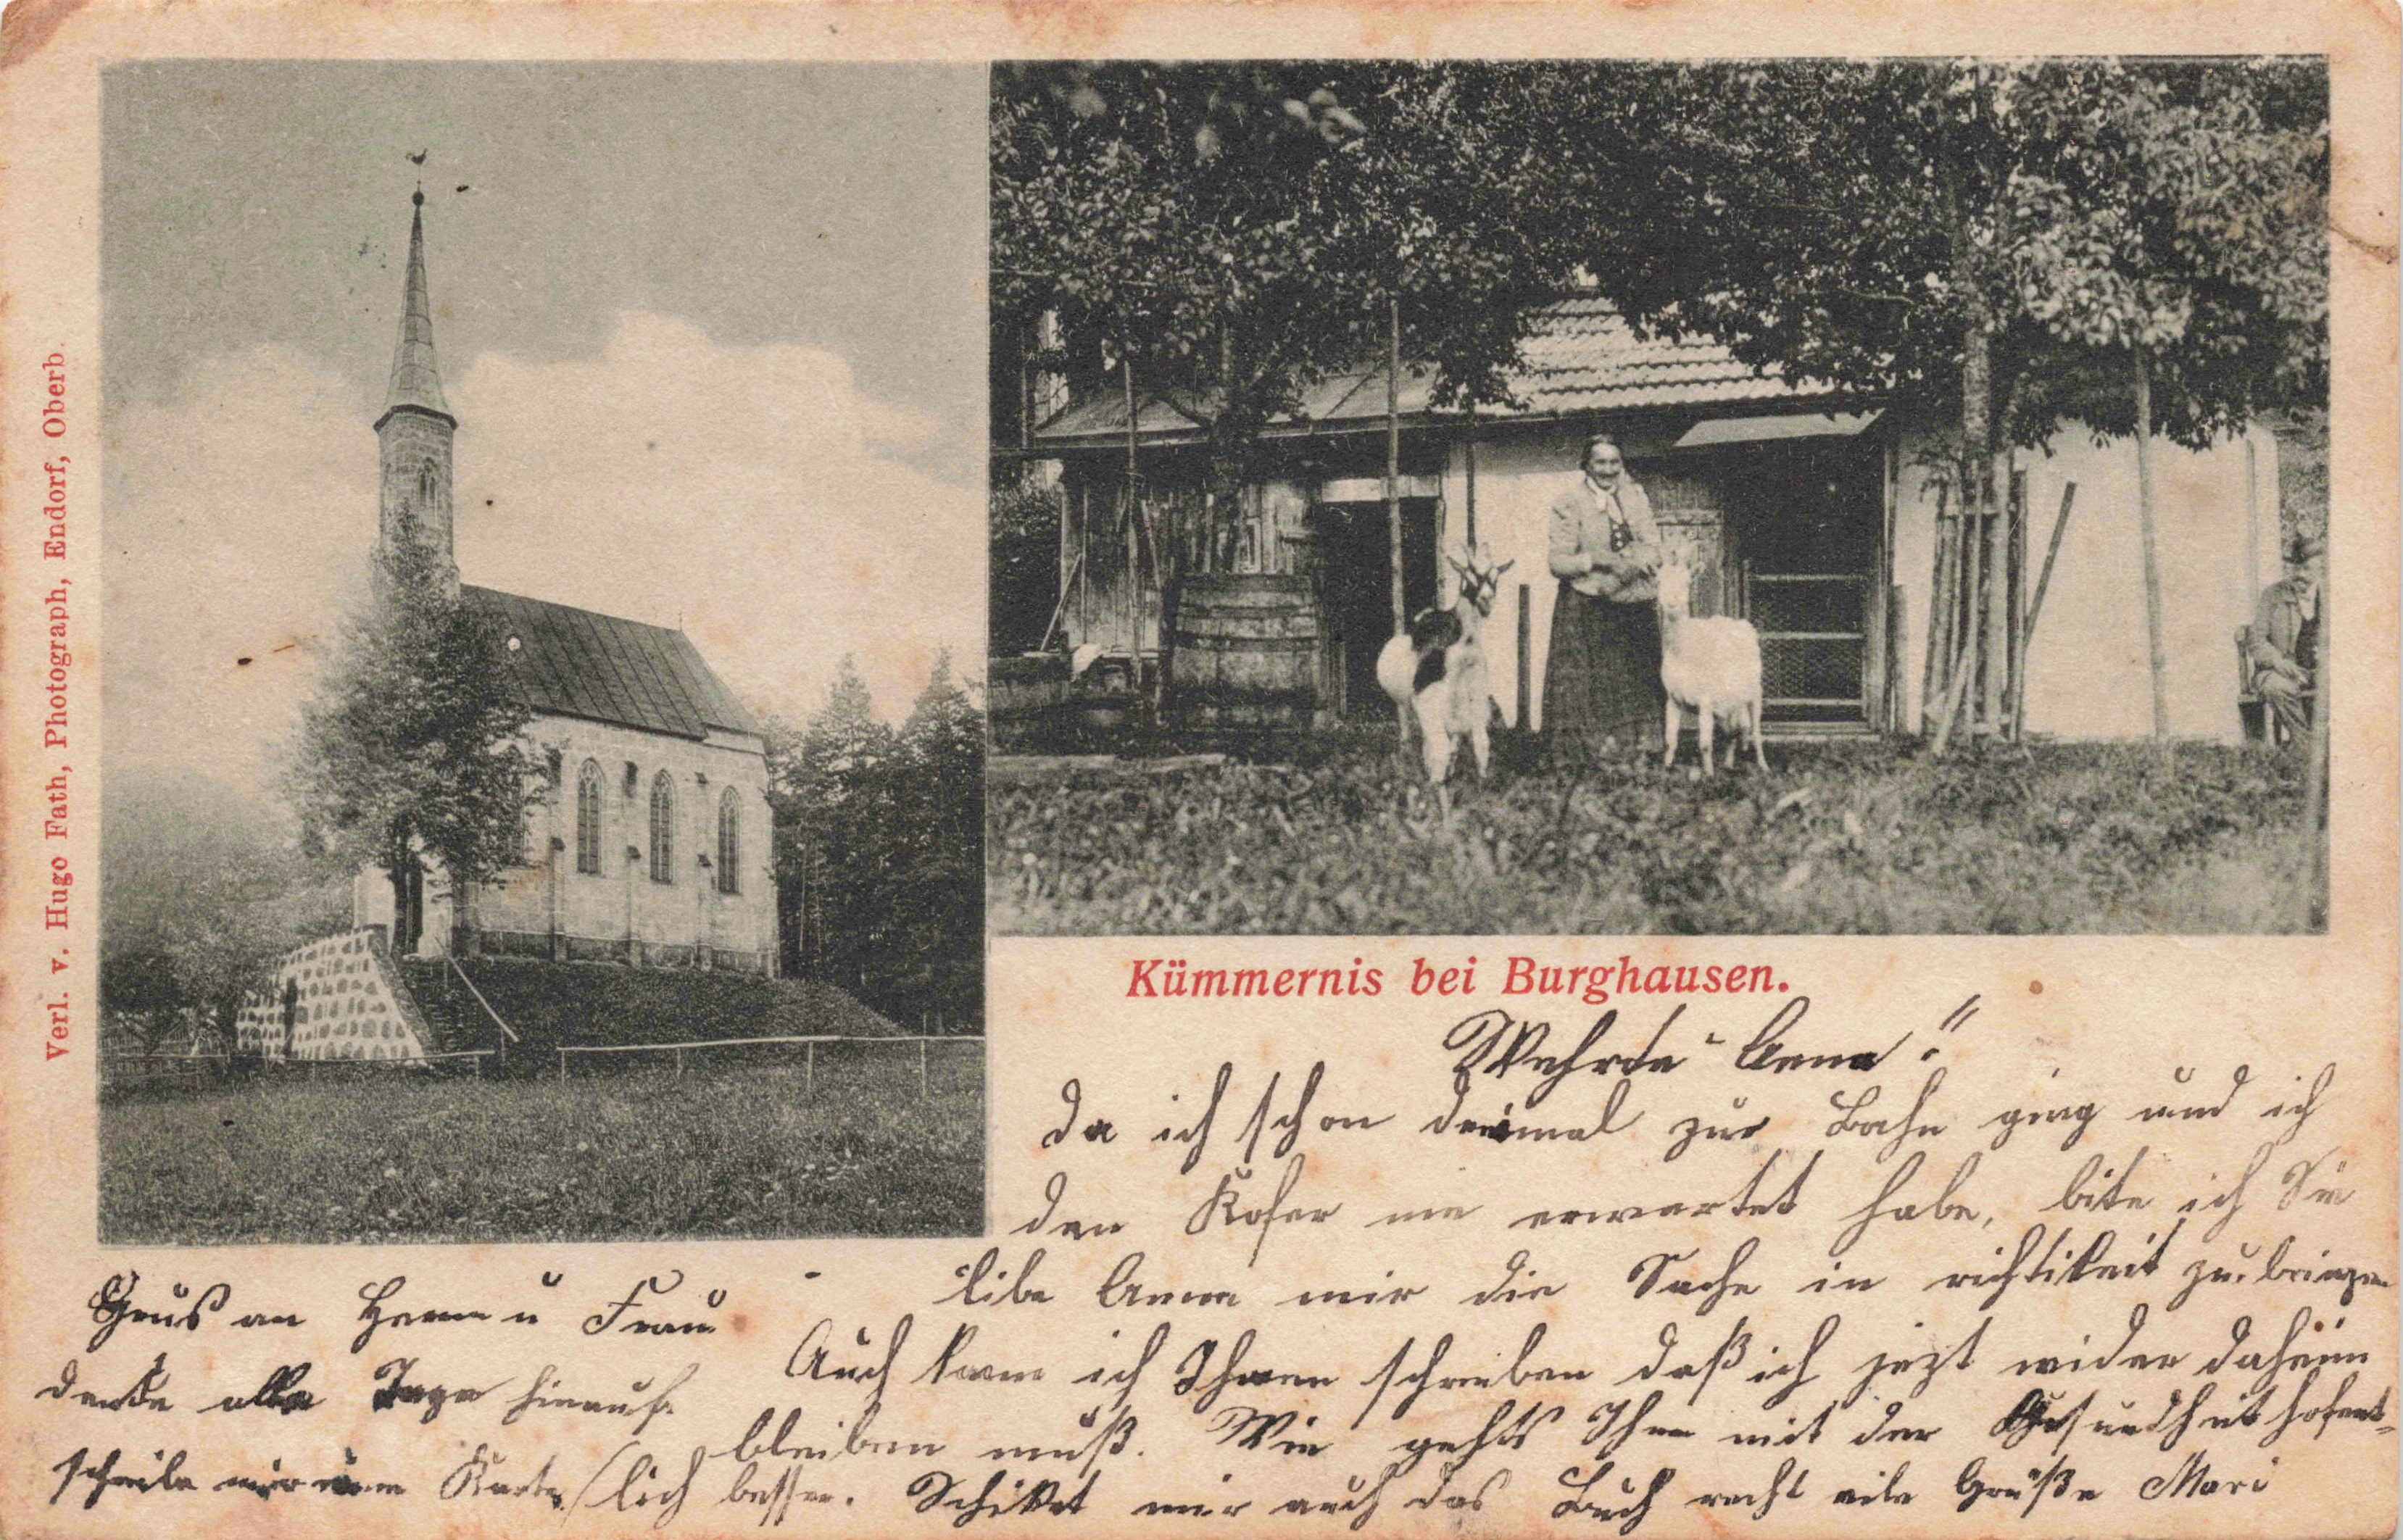 Verl. v. Hugo Fath, Photograph, Endorf, Oberb.
Kümmernis bei Burghausen.
Wehrte Anna!
Da ich schon dreimal zur Bahn ging und ich
den Kofer nie erwartet habe, bite ich Sie
libe Anna mir die Sache in richtikeit zu bringen
Auch kann ich Ihnen schreiben daß ich jezt wider daheim
bleiben muß. Wie gehts Ihnen mit der Gesundheit hofent-
lich besser. Schikt mir auch das Buch recht vile Grüße Mari
Grus an Herrn u Frau
denke alle Tage hinauf.
schreibe mir eine Karte